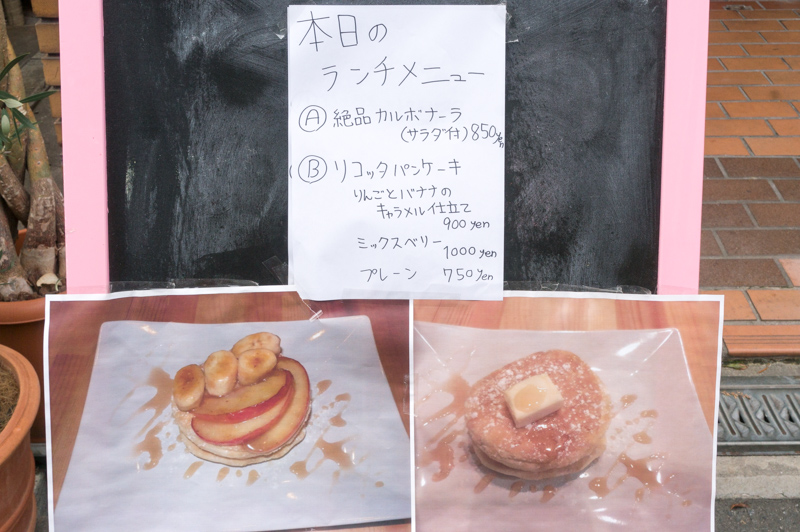 本日の
ランチメニュー
Ⓐ 絶品カルボナーラ
(サラダ付) 850yen
Ⓑ リコッタパンケーキ
りんごとバナナの
キャラメル仕立て
900yen
ミックスベリー 1000yen
プレーン 750yen